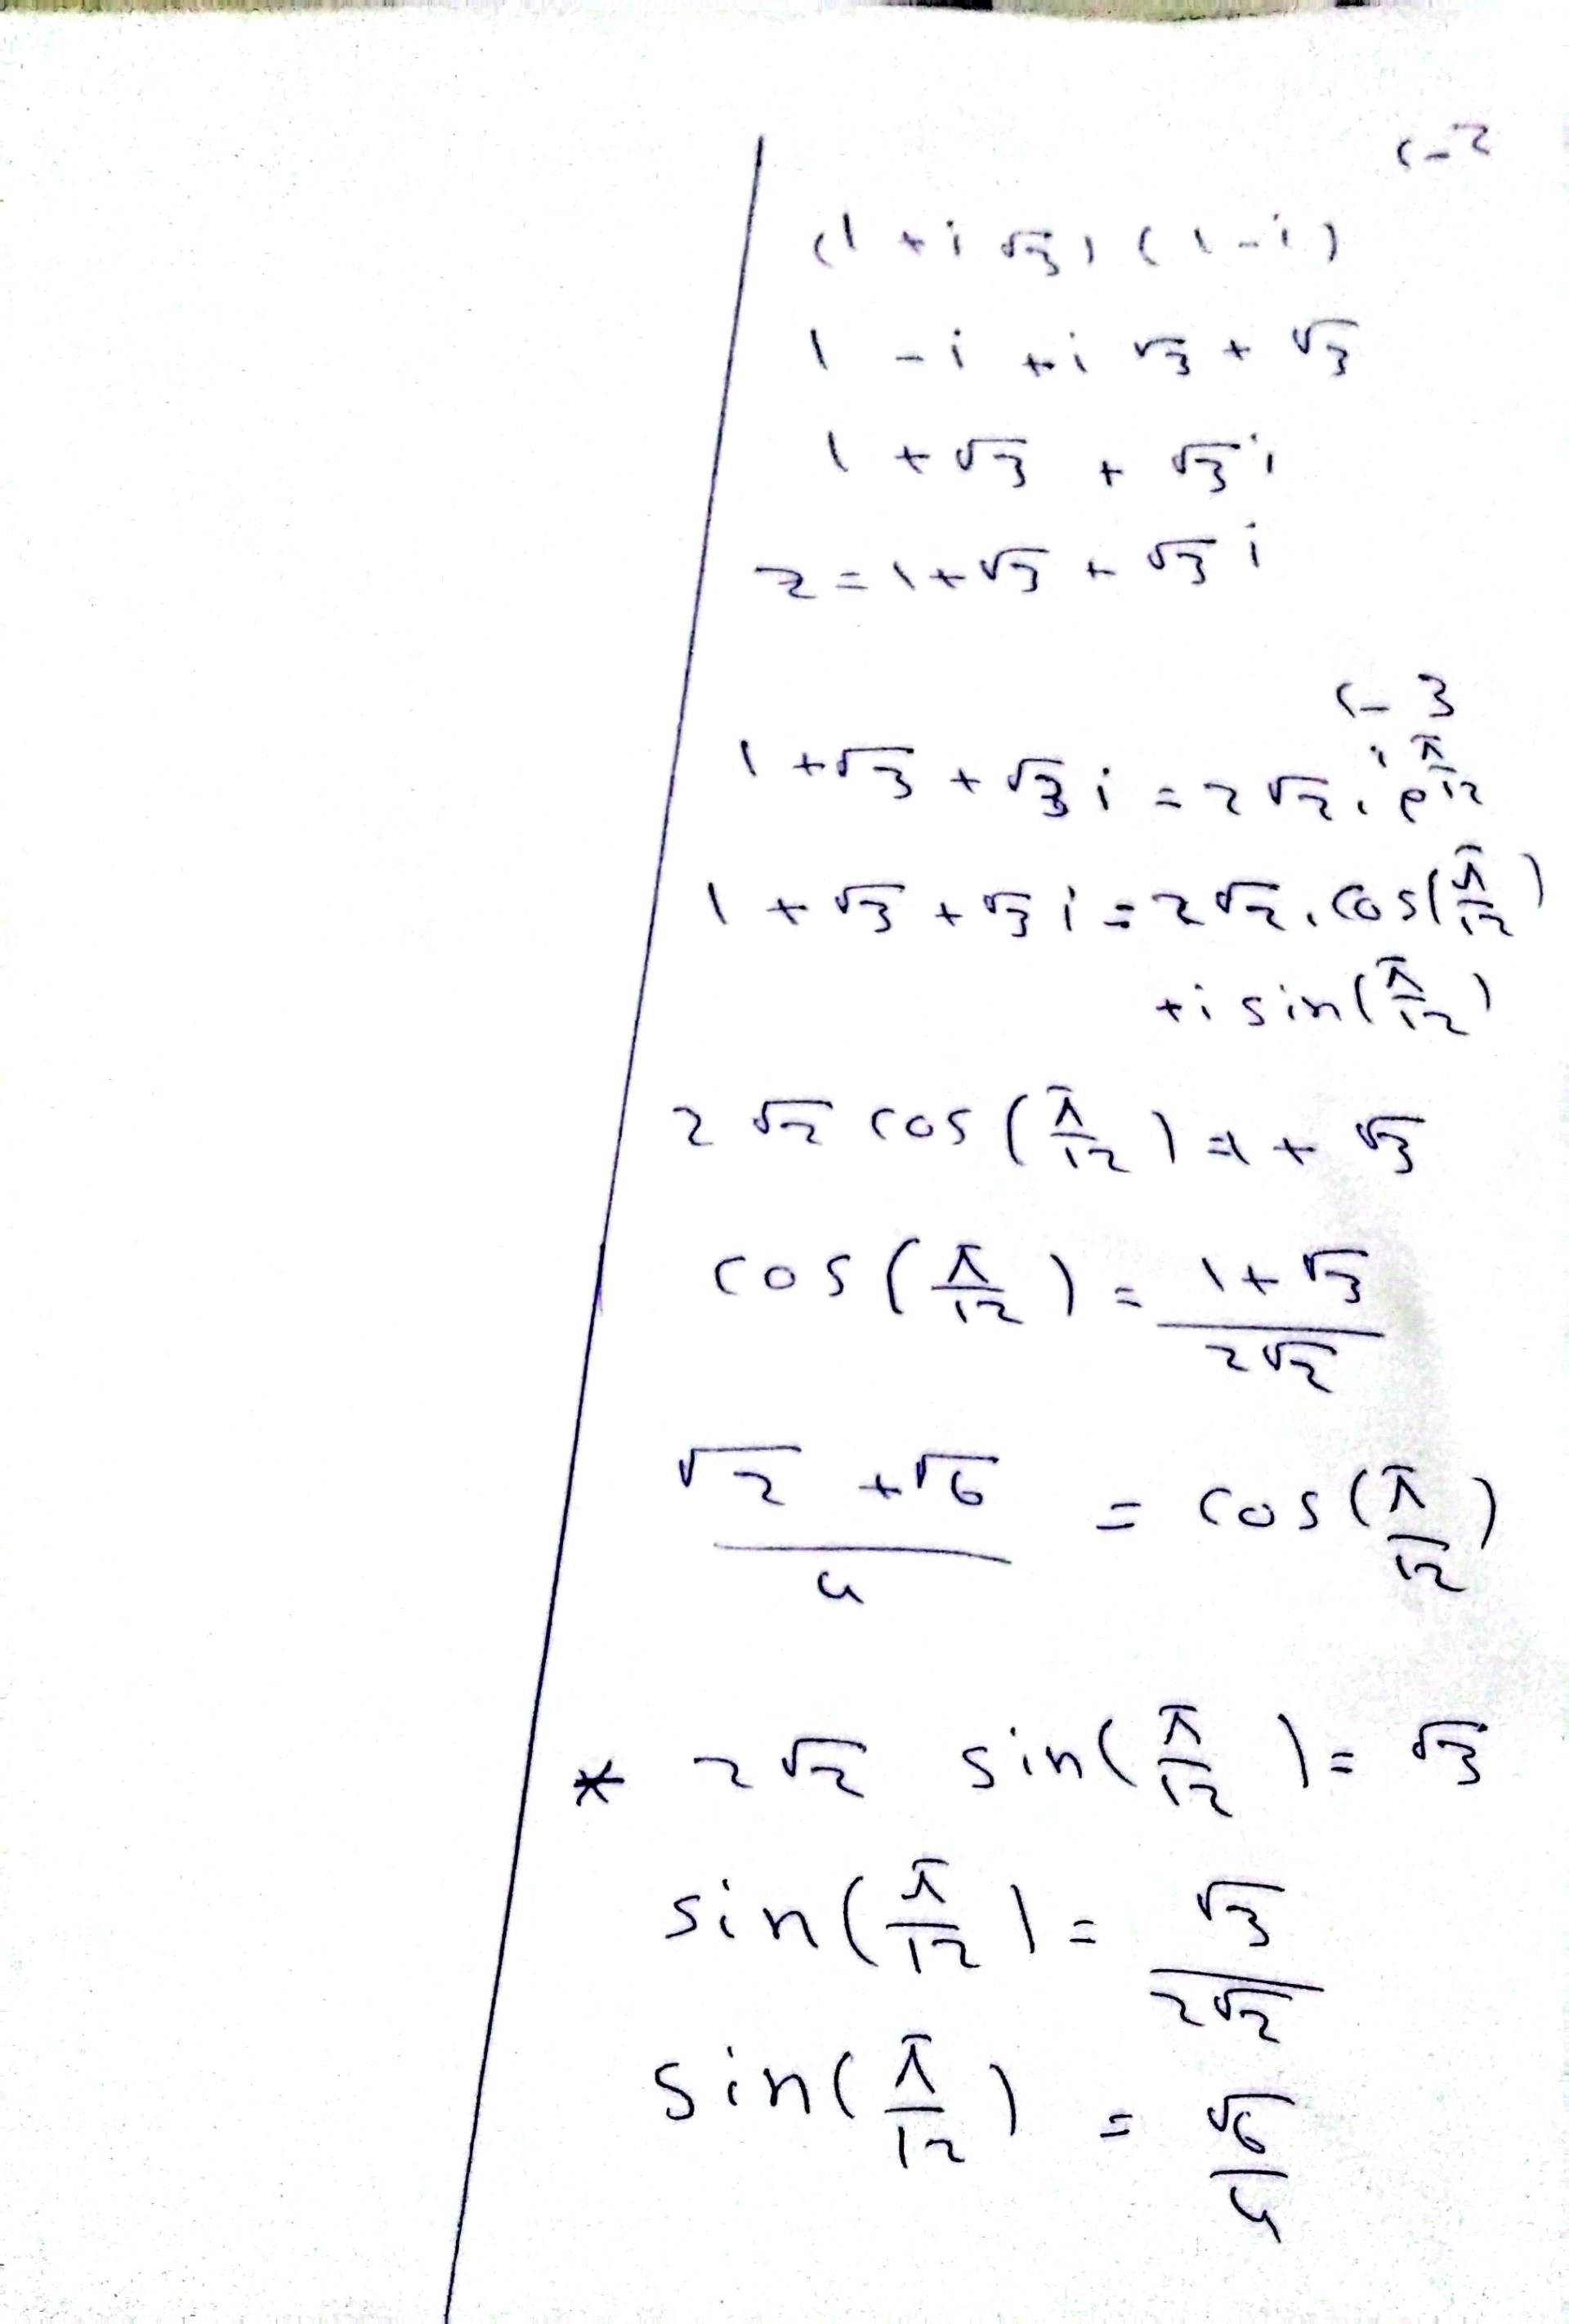 c-2
(1 + i √3) (1 - i)
1 - i + i √3 + √3
1 + √3 + √3 i
z = 1 + √3 + √3 i
c-3
1 + √3 + √3 i = 2 √2 . e^{i π/12}
1 + √3 + √3 i = 2 √2 . cos(π/12)
+ i sin(π/12)
2 √2 cos(π/12) = 1 + √3
cos(π/12) = (1 + √3)/(2√2)
(√2 + √6)/4 = cos(π/12)
* 2 √2 sin(π/12) = √3
sin(π/12) = √3/(2√2)
sin(π/12) = √6/4